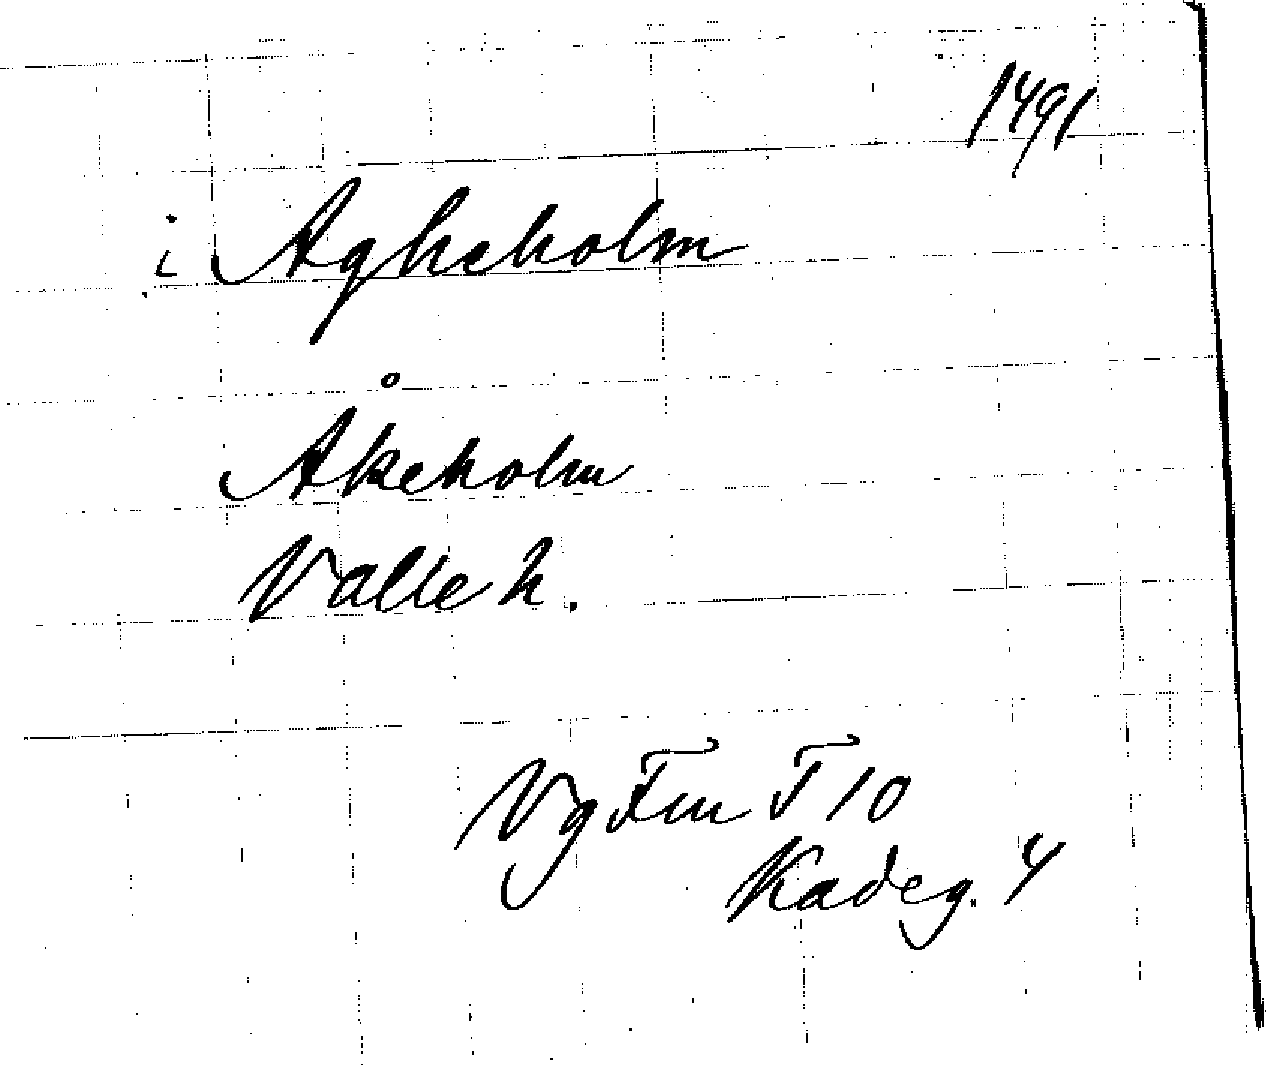 1491
i Agheholm
Åkeholm
Valle h.
Vg Fm F 10
Kadeg. 4